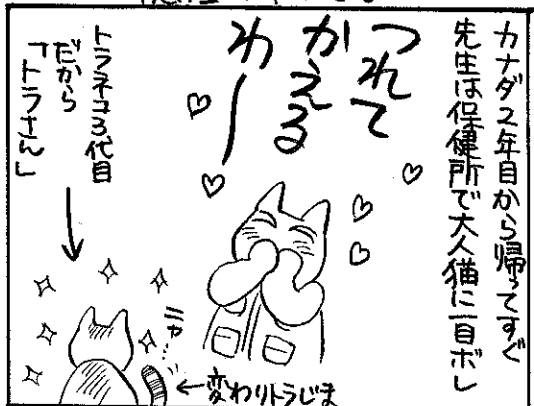 カナダ2年目から帰ってすぐ
先生は保健所で大人猫に一目ボレ
つれて
かえる
わー
トラネコ3代目
だから
「トラさん」
ニャ…
←変わりトラじま